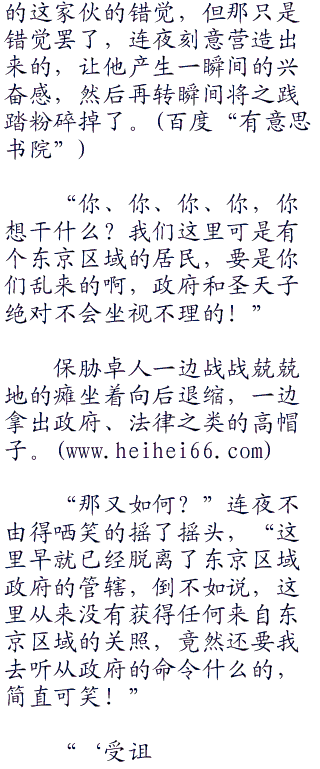 的这家伙的错觉，但那只是
错觉罢了，连夜刻意营造出
来的，让他产生一瞬间的兴
奋感，然后再转瞬间将之践
踏粉碎掉了。(百度“有意思
书院”)
“你、你、你、你，你
想干什么？我们这里可是有
个东京区域的居民，要是你
们乱来的啊，政府和圣天子
绝对不会坐视不理的！”
保胁卓人一边战战兢兢
地的瘫坐着向后退缩，一边
拿出政府、法律之类的高帽
子。(www.heihei66.com)
“那又如何？”连夜不
由得哂笑的摇了摇头，“这
里早就已经脱离了东京区域
政府的管辖，倒不如说，这
里从来没有获得任何来自东
京区域的关照，竟然还要我
去听从政府的命令什么的，
简直可笑！”
“‘受诅